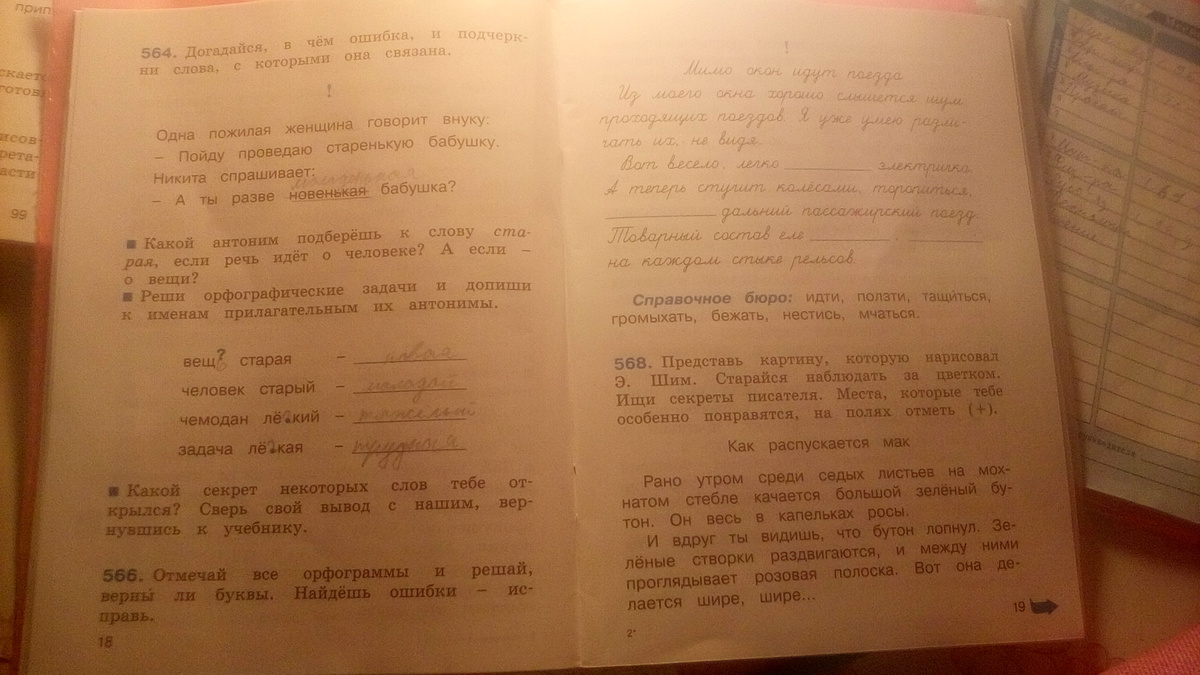 564. Догадайся, в чём ошибка, и подчерк-
ни слова, с которыми она связана.
!
Одна пожилая женщина говорит внуку:
– Пойду проведаю старенькую бабушку.
Никита спрашивает:
– А ты разве новенькая бабушка?
■ Какой антоним подберёшь к слову ста-
рая, если речь идёт о человеке? А если –
о вещи?
■ Реши орфографические задачи и допиши
к именам прилагательным их антонимы.
вещ? старая – новая
человек старый – молодой
чемодан лё?кий – тяжелый
задача лё?кая – трудная
■ Какой секрет некоторых слов тебе от-
крылся? Сверь свой вывод с нашим, вер-
нувшись к учебнику.
566. Отмечай все орфограммы и решай,
верны ли буквы. Найдёшь ошибки – ис-
правь.
18
!
Мимо окон идут поезда
Из моего окна хорошо слышется шум
проходящих поездов. Я уже умею разли-
чать их, не видя.
Вот весело, легко ________ электричка.
А теперь стучит колёсами, торопиться,
________ дальний пассажирский поезд.
Товарный состав еле ________ ________
на каждом стыке рельсов.
Справочное бюро: идти, ползти, тащиться,
громыхать, бежать, нестись, мчаться.
568. Представь картину, которую нарисовал
Э. Шим. Старайся наблюдать за цветком.
Ищи секреты писателя. Места, которые тебе
особенно понравятся, на полях отметь (+).
Как распускается мак
Рано утром среди седых листьев на мох-
натом стебле качается большой зелёный бу-
тон. Он весь в капельках росы.
И вдруг ты видишь, что бутон лопнул. Зе-
лёные створки раздвигаются, и между ними
проглядывает розовая полоска. Вот она де-
лается шире, шире...
19
2*
99